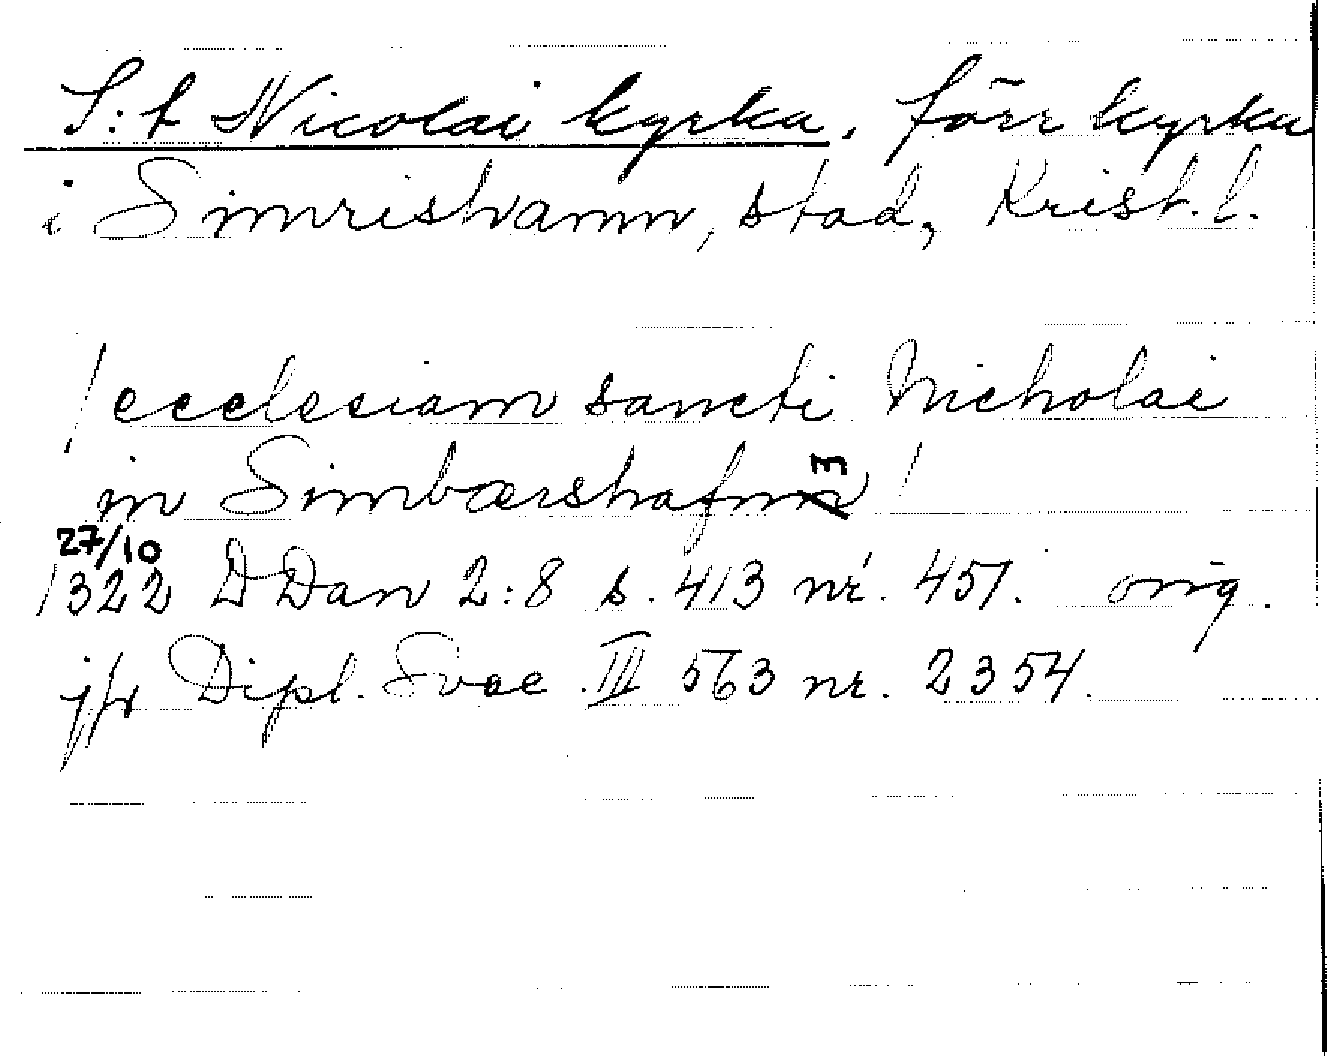 S:t Nicolai kyrka, förr kyrka
i Simrishamn, stad, Krist. l.
/ecclesiam sancti Nicholai
in Simbærshafm/
27/10
1322 DDan 2:8 s. 413 nr. 451. orig.
jfr Dipl. Svec. III 563 nr. 2354.